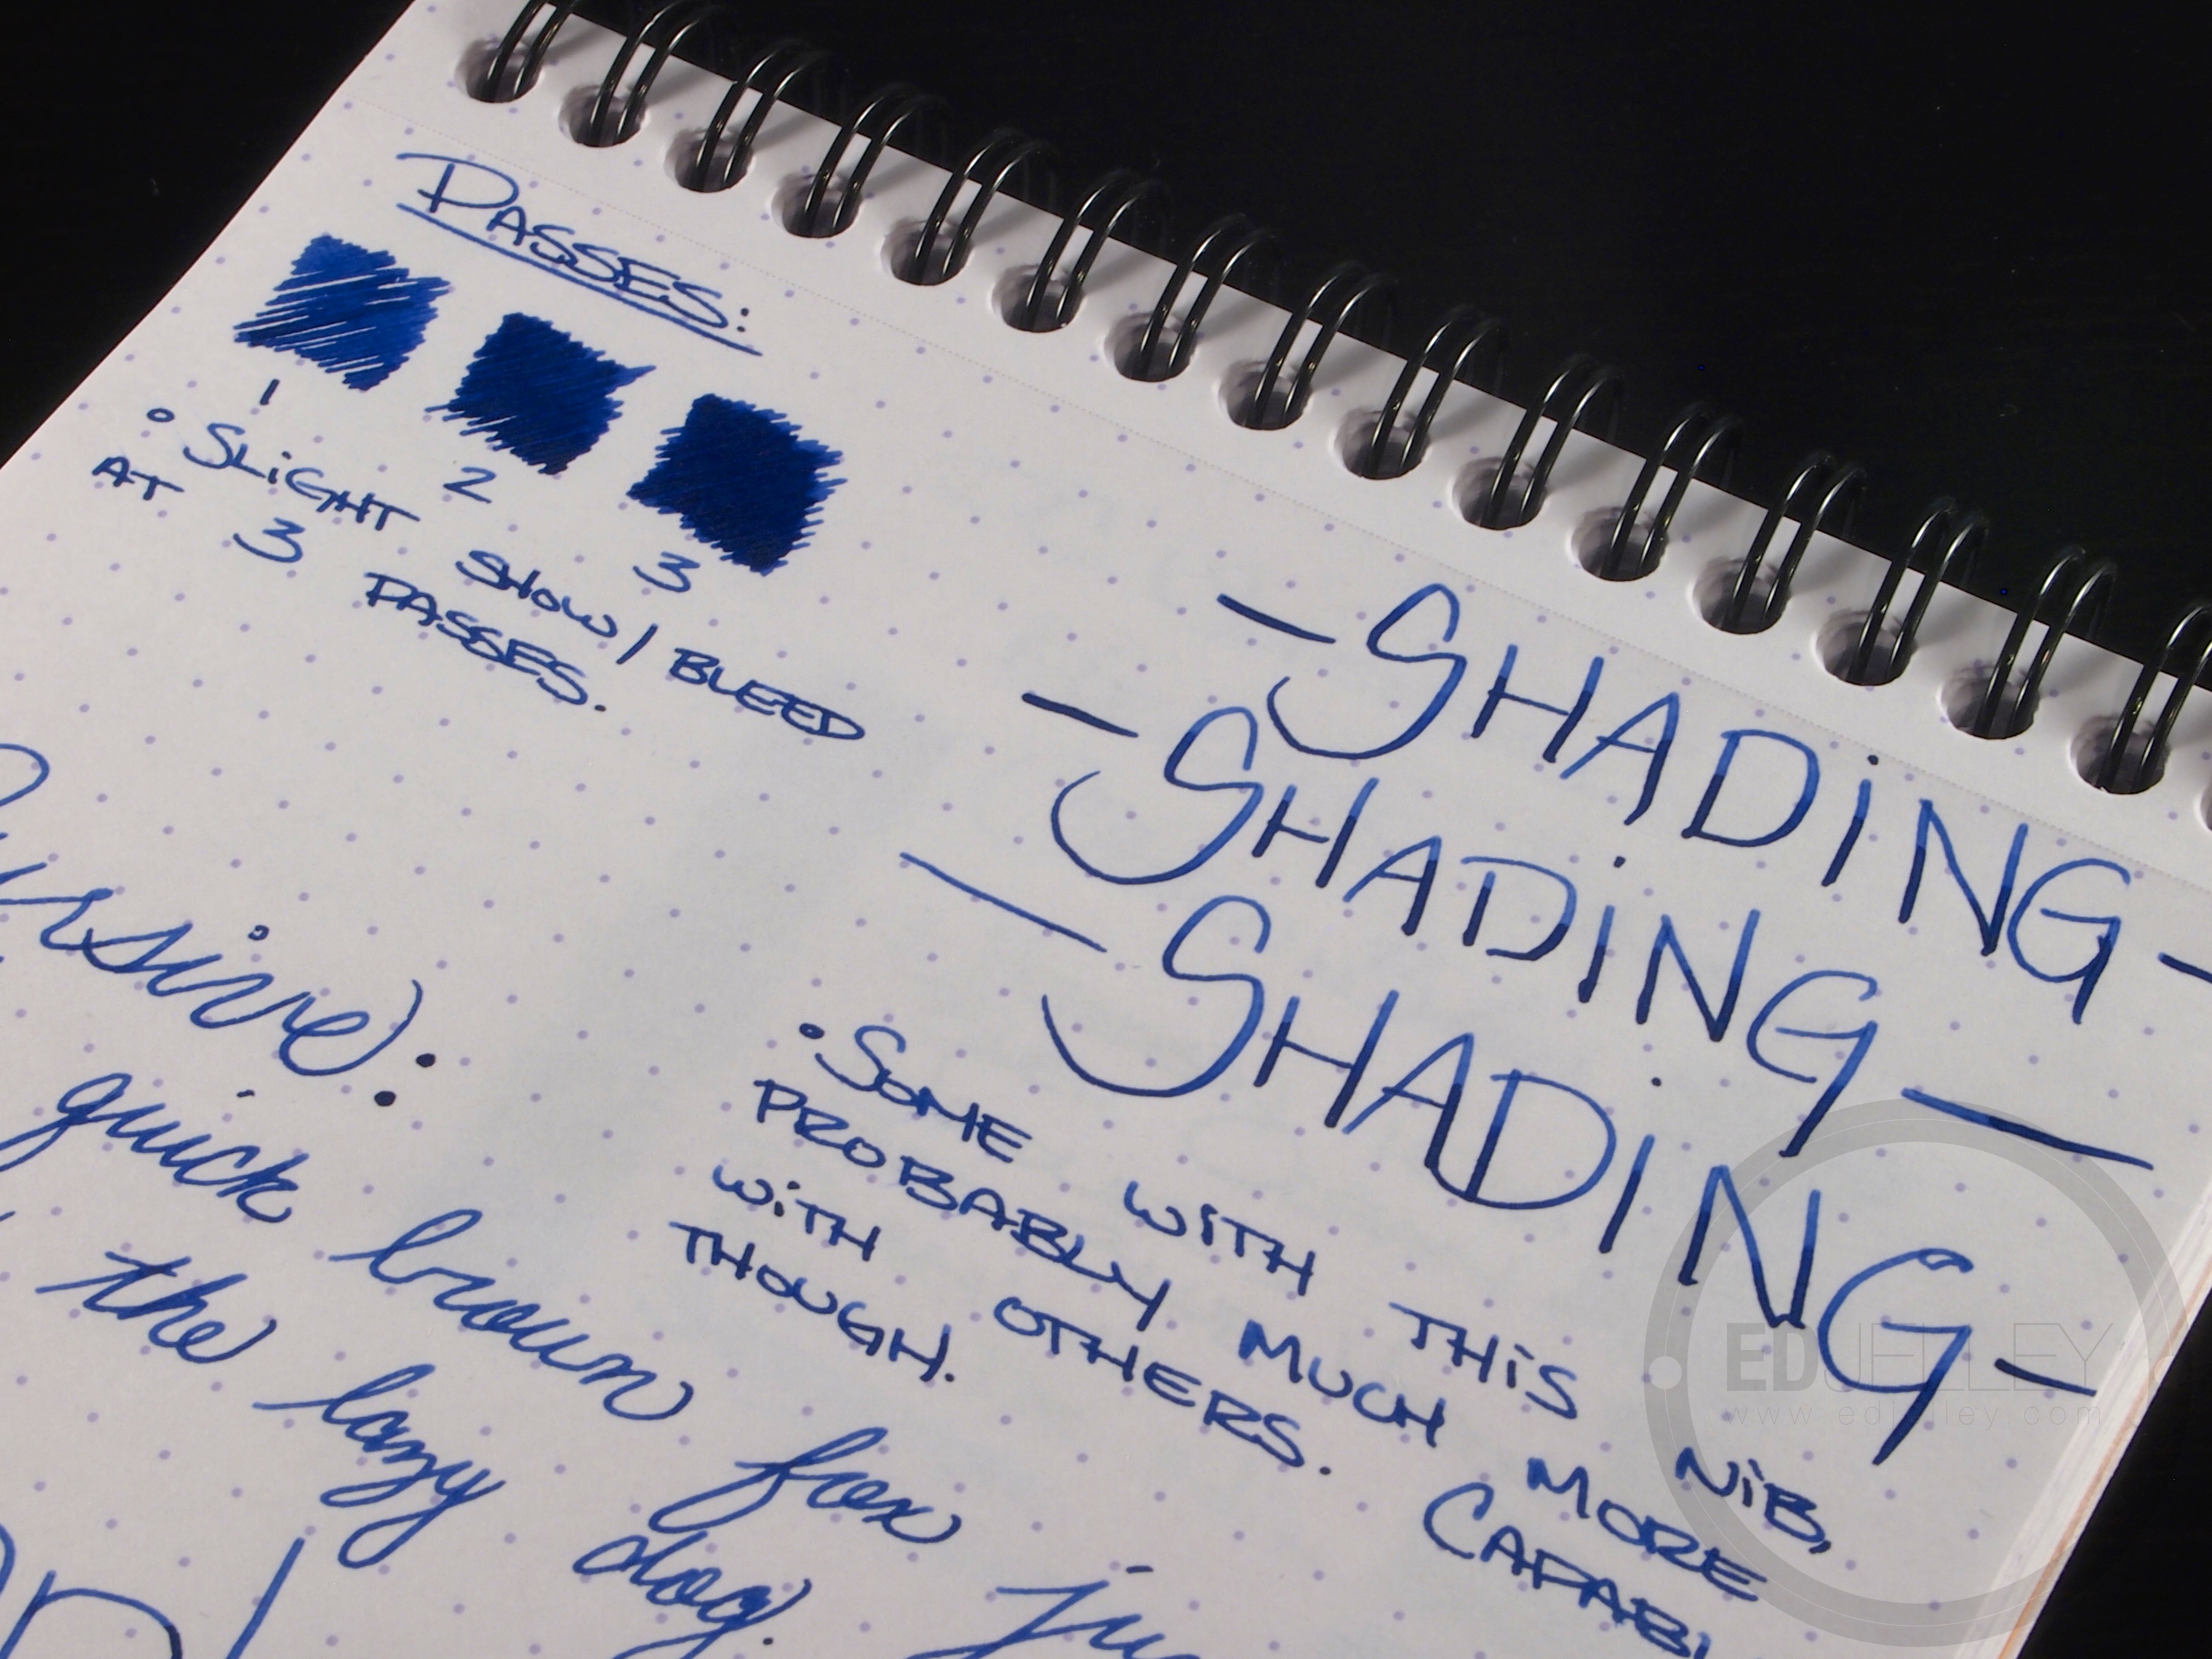 PASSES:
1 2 3
• SLiGHT SHOW / BLEED
AT 3 PASSES.
- SHADiNG -
- SHADiNG -
- SHADiNG -
• SOME WiTH THiS NiB,
PROBABLY MUCH MORE
WiTH OTHERS. CAPABL
THOUGH.
quick brown fox
the lazy dog.
EDJELLEY
www.edjelley.com